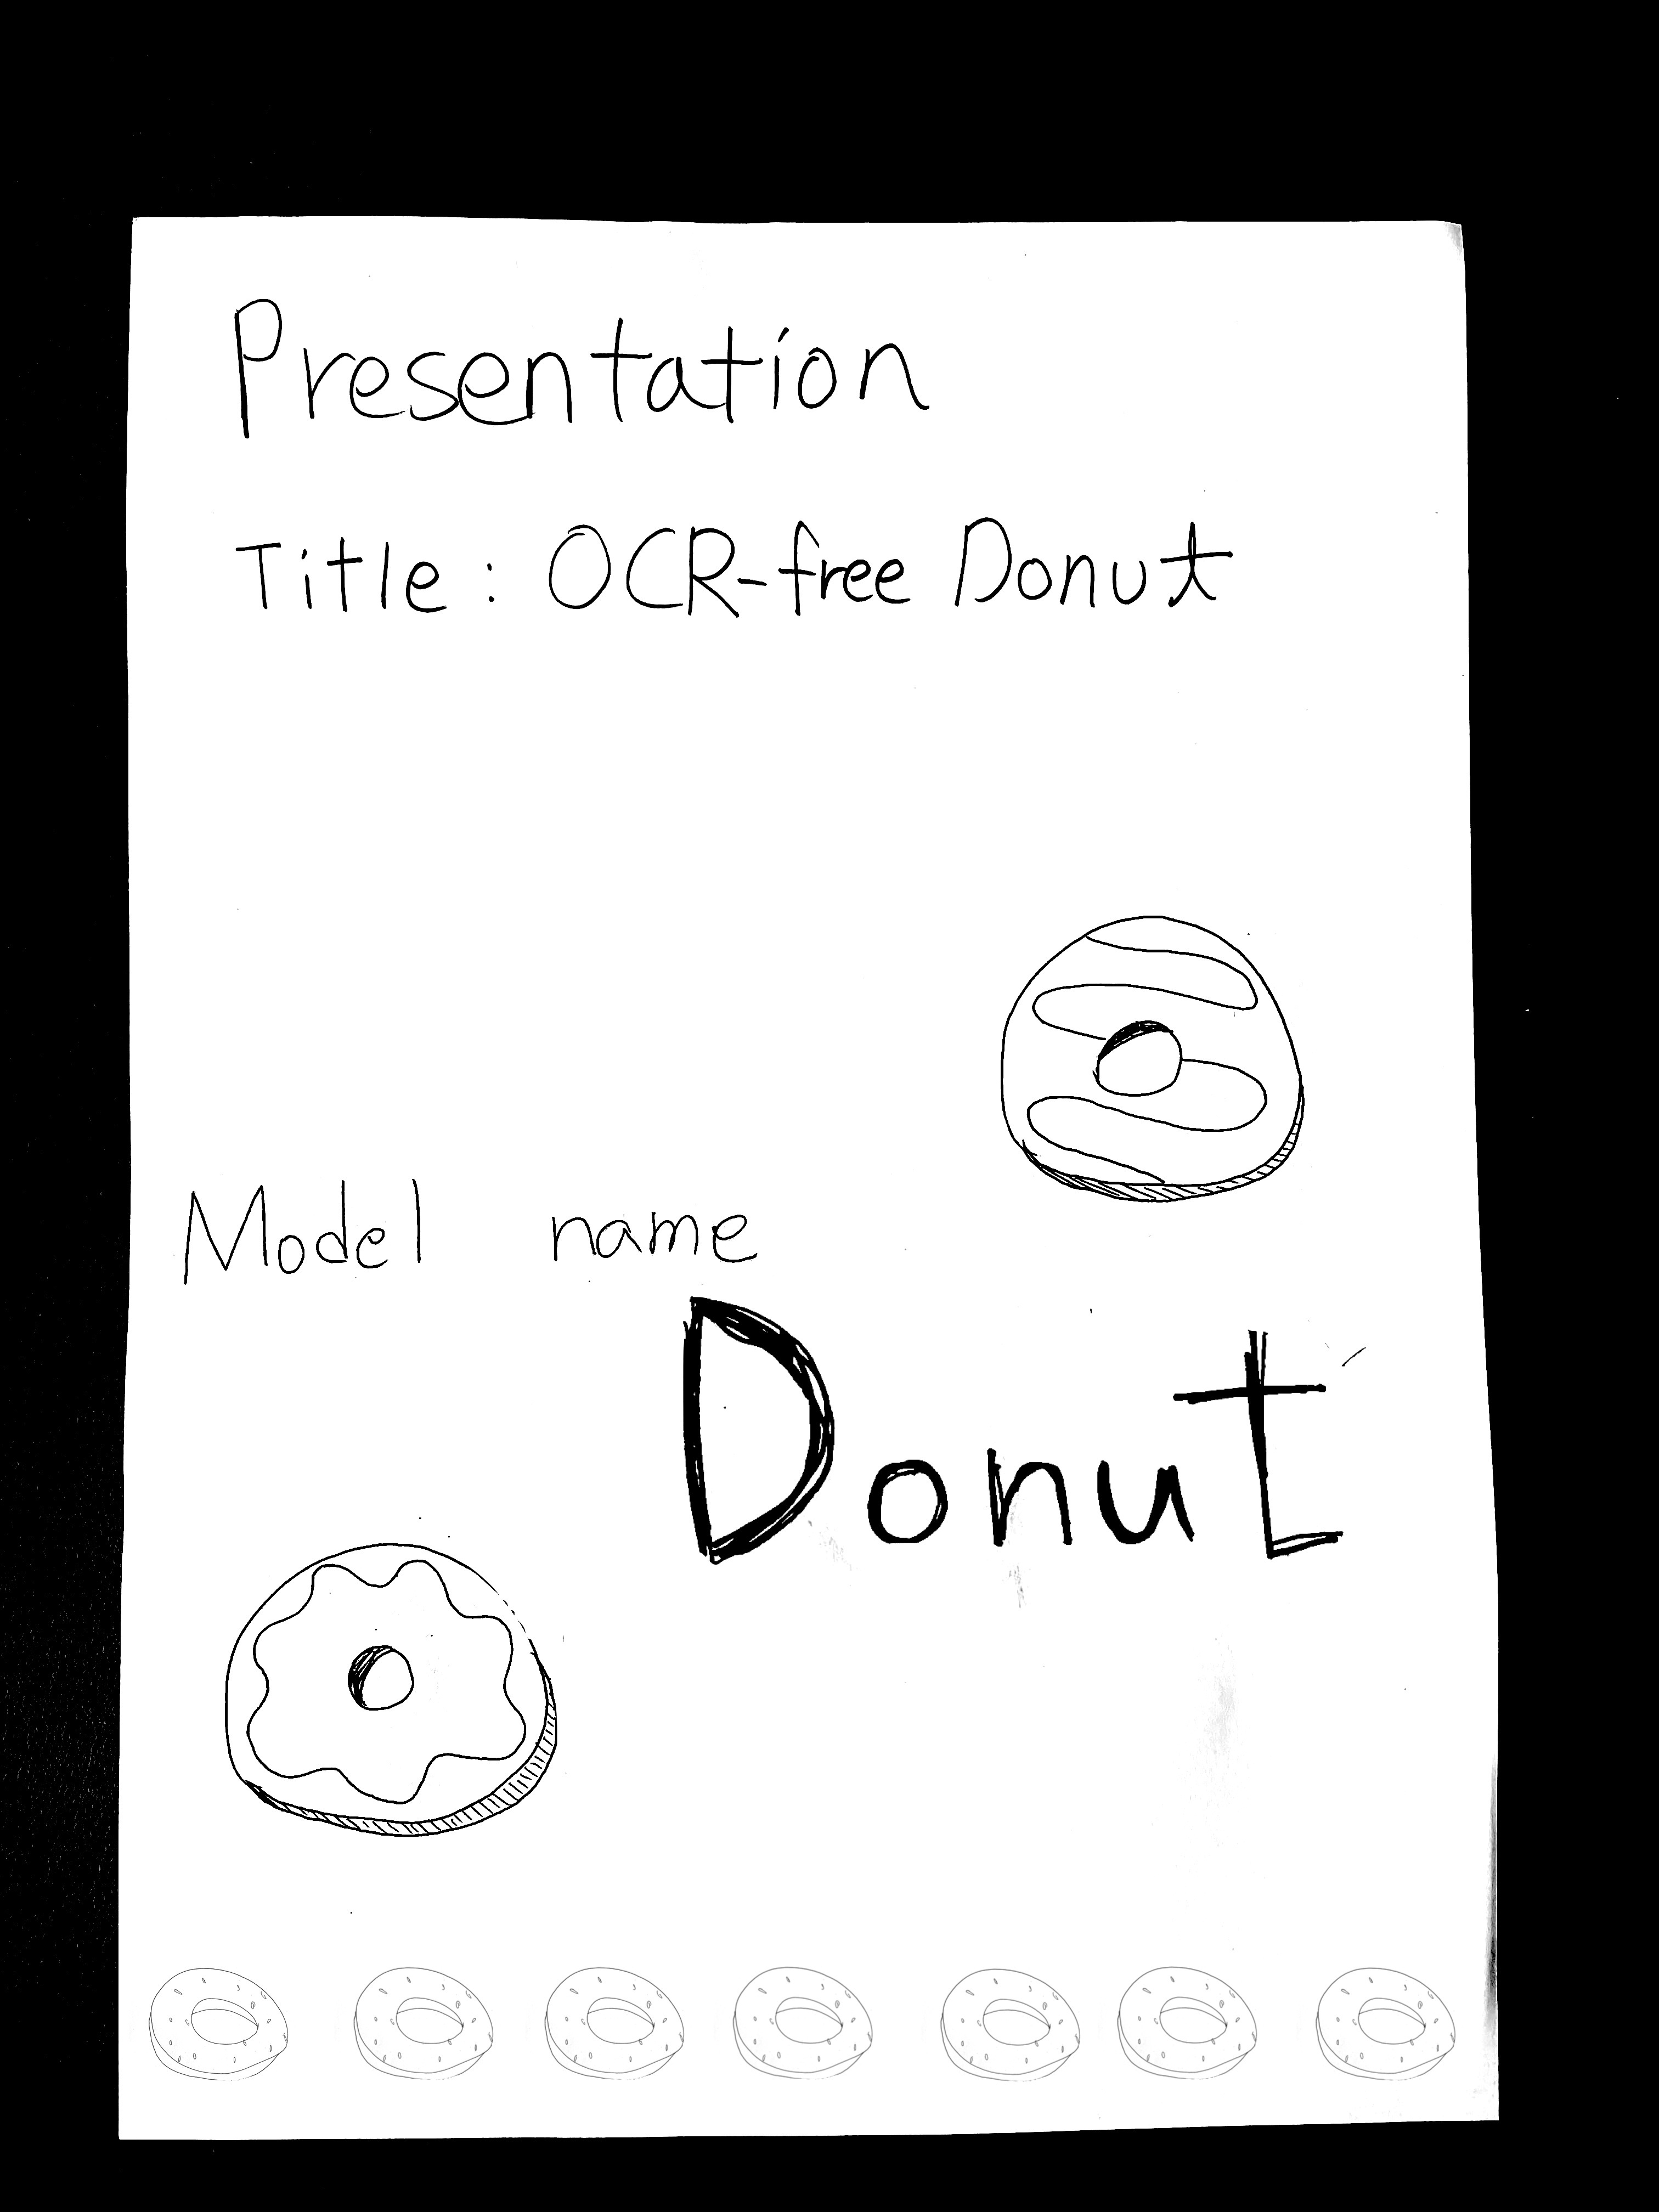 Presentation
Title : OCR-free Donut
Model name
Donut